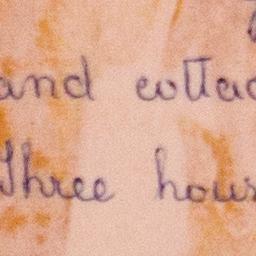 and cottag
Three hous